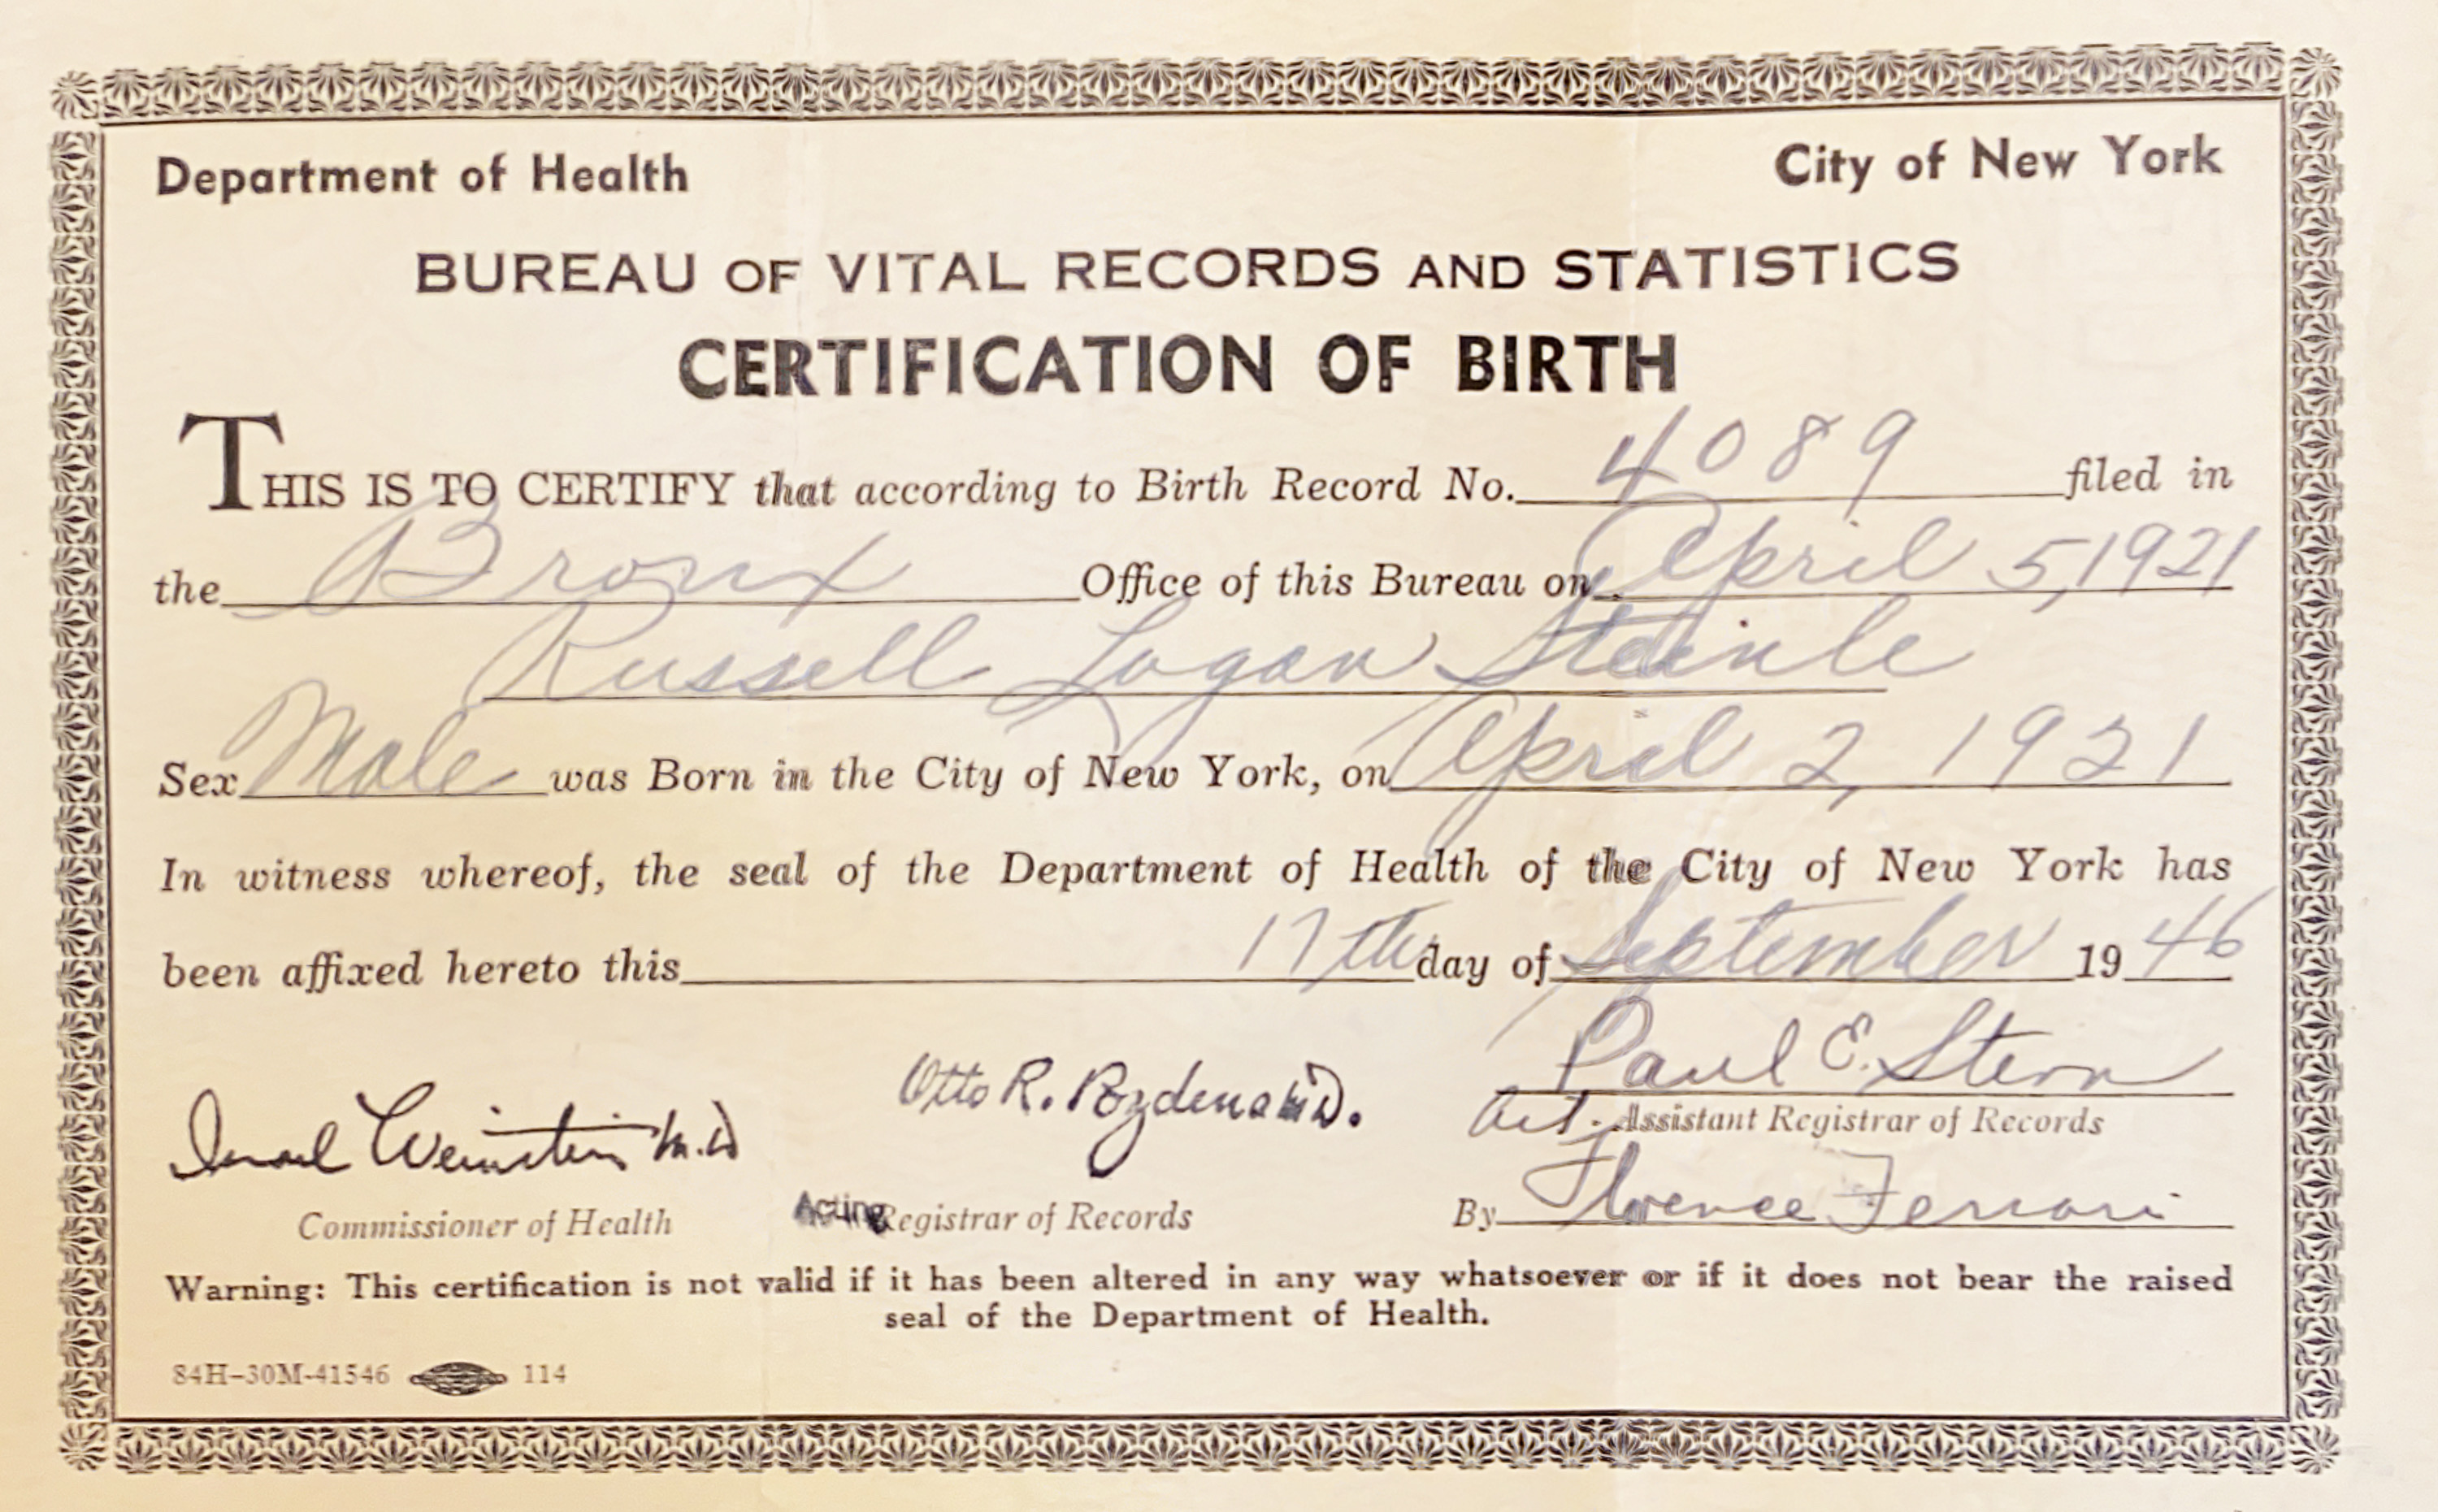 Department of Health City of New York
BUREAU OF VITAL RECORDS AND STATISTICS
CERTIFICATION OF BIRTH
THIS IS TO CERTIFY that according to Birth Record No. 4089 filed in
the Bronx Office of this Bureau on April 5, 1921
Russell Logan Steinle
Sex Male was Born in the City of New York, on April 2, 1921
In witness whereof, the seal of the Department of Health of the City of New York has
been affixed hereto this 17th day of September 1946
Paul E. Stern
Act. Assistant Registrar of Records
Israel Weinstein M.D
Commissioner of Health
Otto R. Pozdena M.D.
Acting Registrar of Records
By Florence Ferrari
Warning: This certification is not valid if it has been altered in any way whatsoever or if it does not bear the raised
seal of the Department of Health.
84H-30M-41546 114